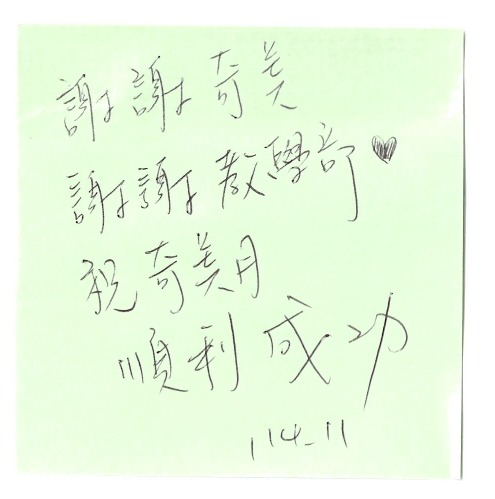 謝謝奇美
謝謝教學部♥
祝奇美月
順利成功
114.11